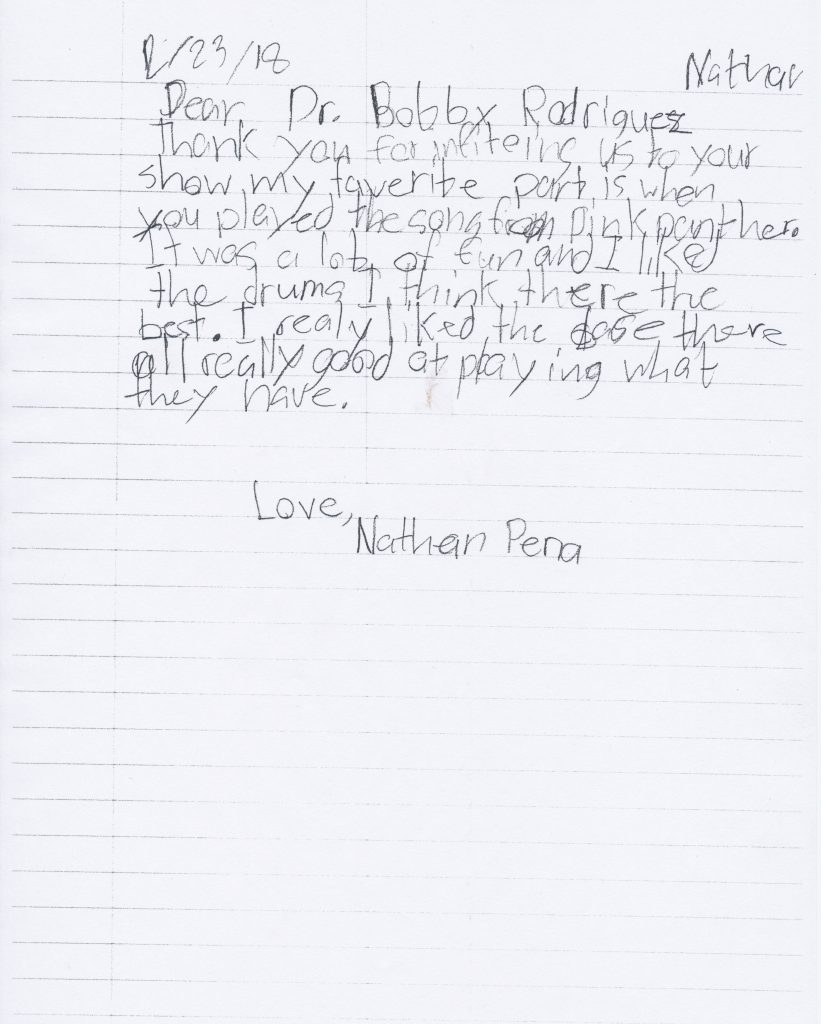 2/23/18 Nathan
Dear Dr. Bobby Rodriguez
Thank you for infiteing us to your
show my faverite part is when
you played the song from pink panther.
It was a lot of fun and I liked
the drums I think there the
best. I realy liked the base there
all really good at playing what
they have.
Love,
Nathan Pena